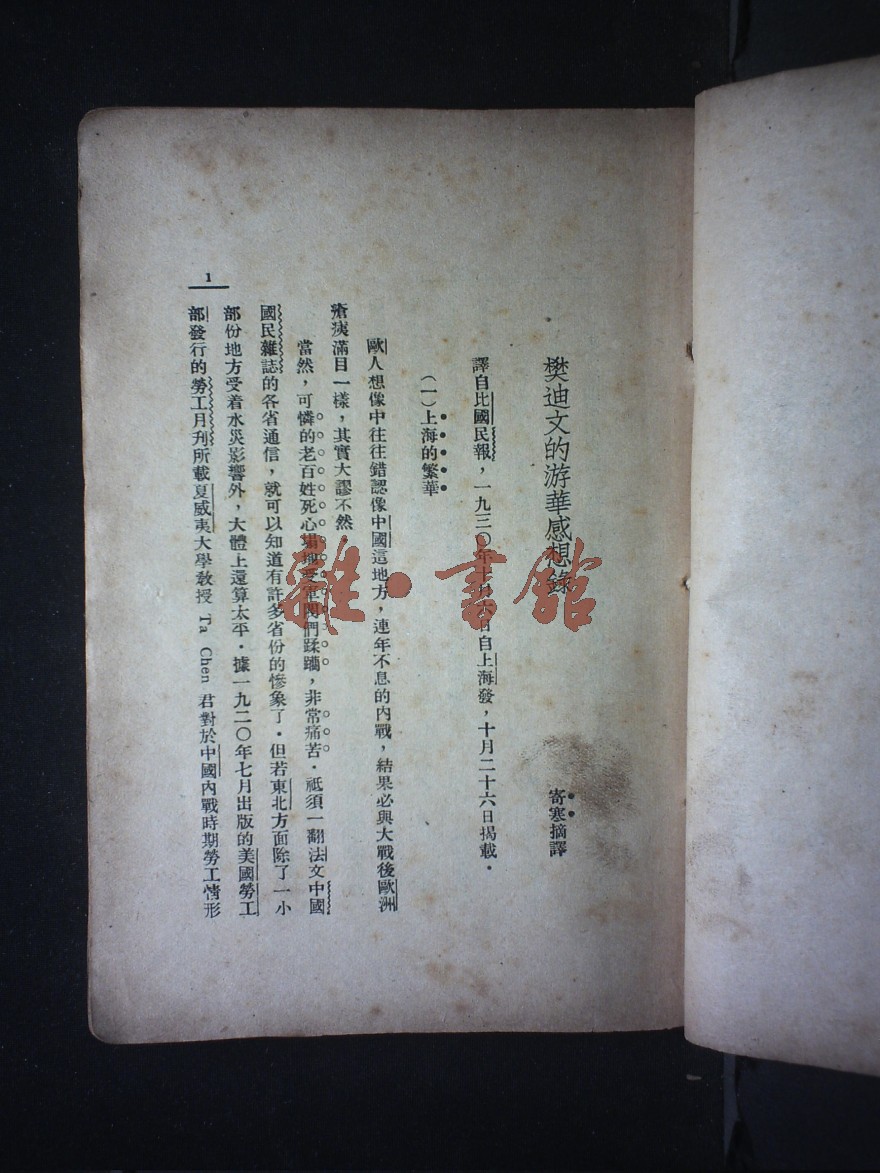 樊迪文的游華感想錄
寄寒摘譯
譯自比國民報，一九三〇年十月六日自上海發，十月二十六日揭載．
（一）上海的繁華
歐人想像中往往錯認像中國這地方，連年不息的內戰，結果必與大戰後歐洲
瘡痍滿目一樣，其實大謬不然
當然，可憐的老百姓死心塌地受軍閥們蹂躪，非常痛苦．祗須一翻法文中國
國民雜誌的各省通信，就可以知道有許多省份的慘象了．但若東北方面除了一小
部份地方受着水災影響外，大體上還算太平．據一九二〇年七月出版的美國勞工
部發行的勞工月刊所載夏威夷大學教授 Ta Chen 君對於中國內戰時期勞工情形
1
雜·書館